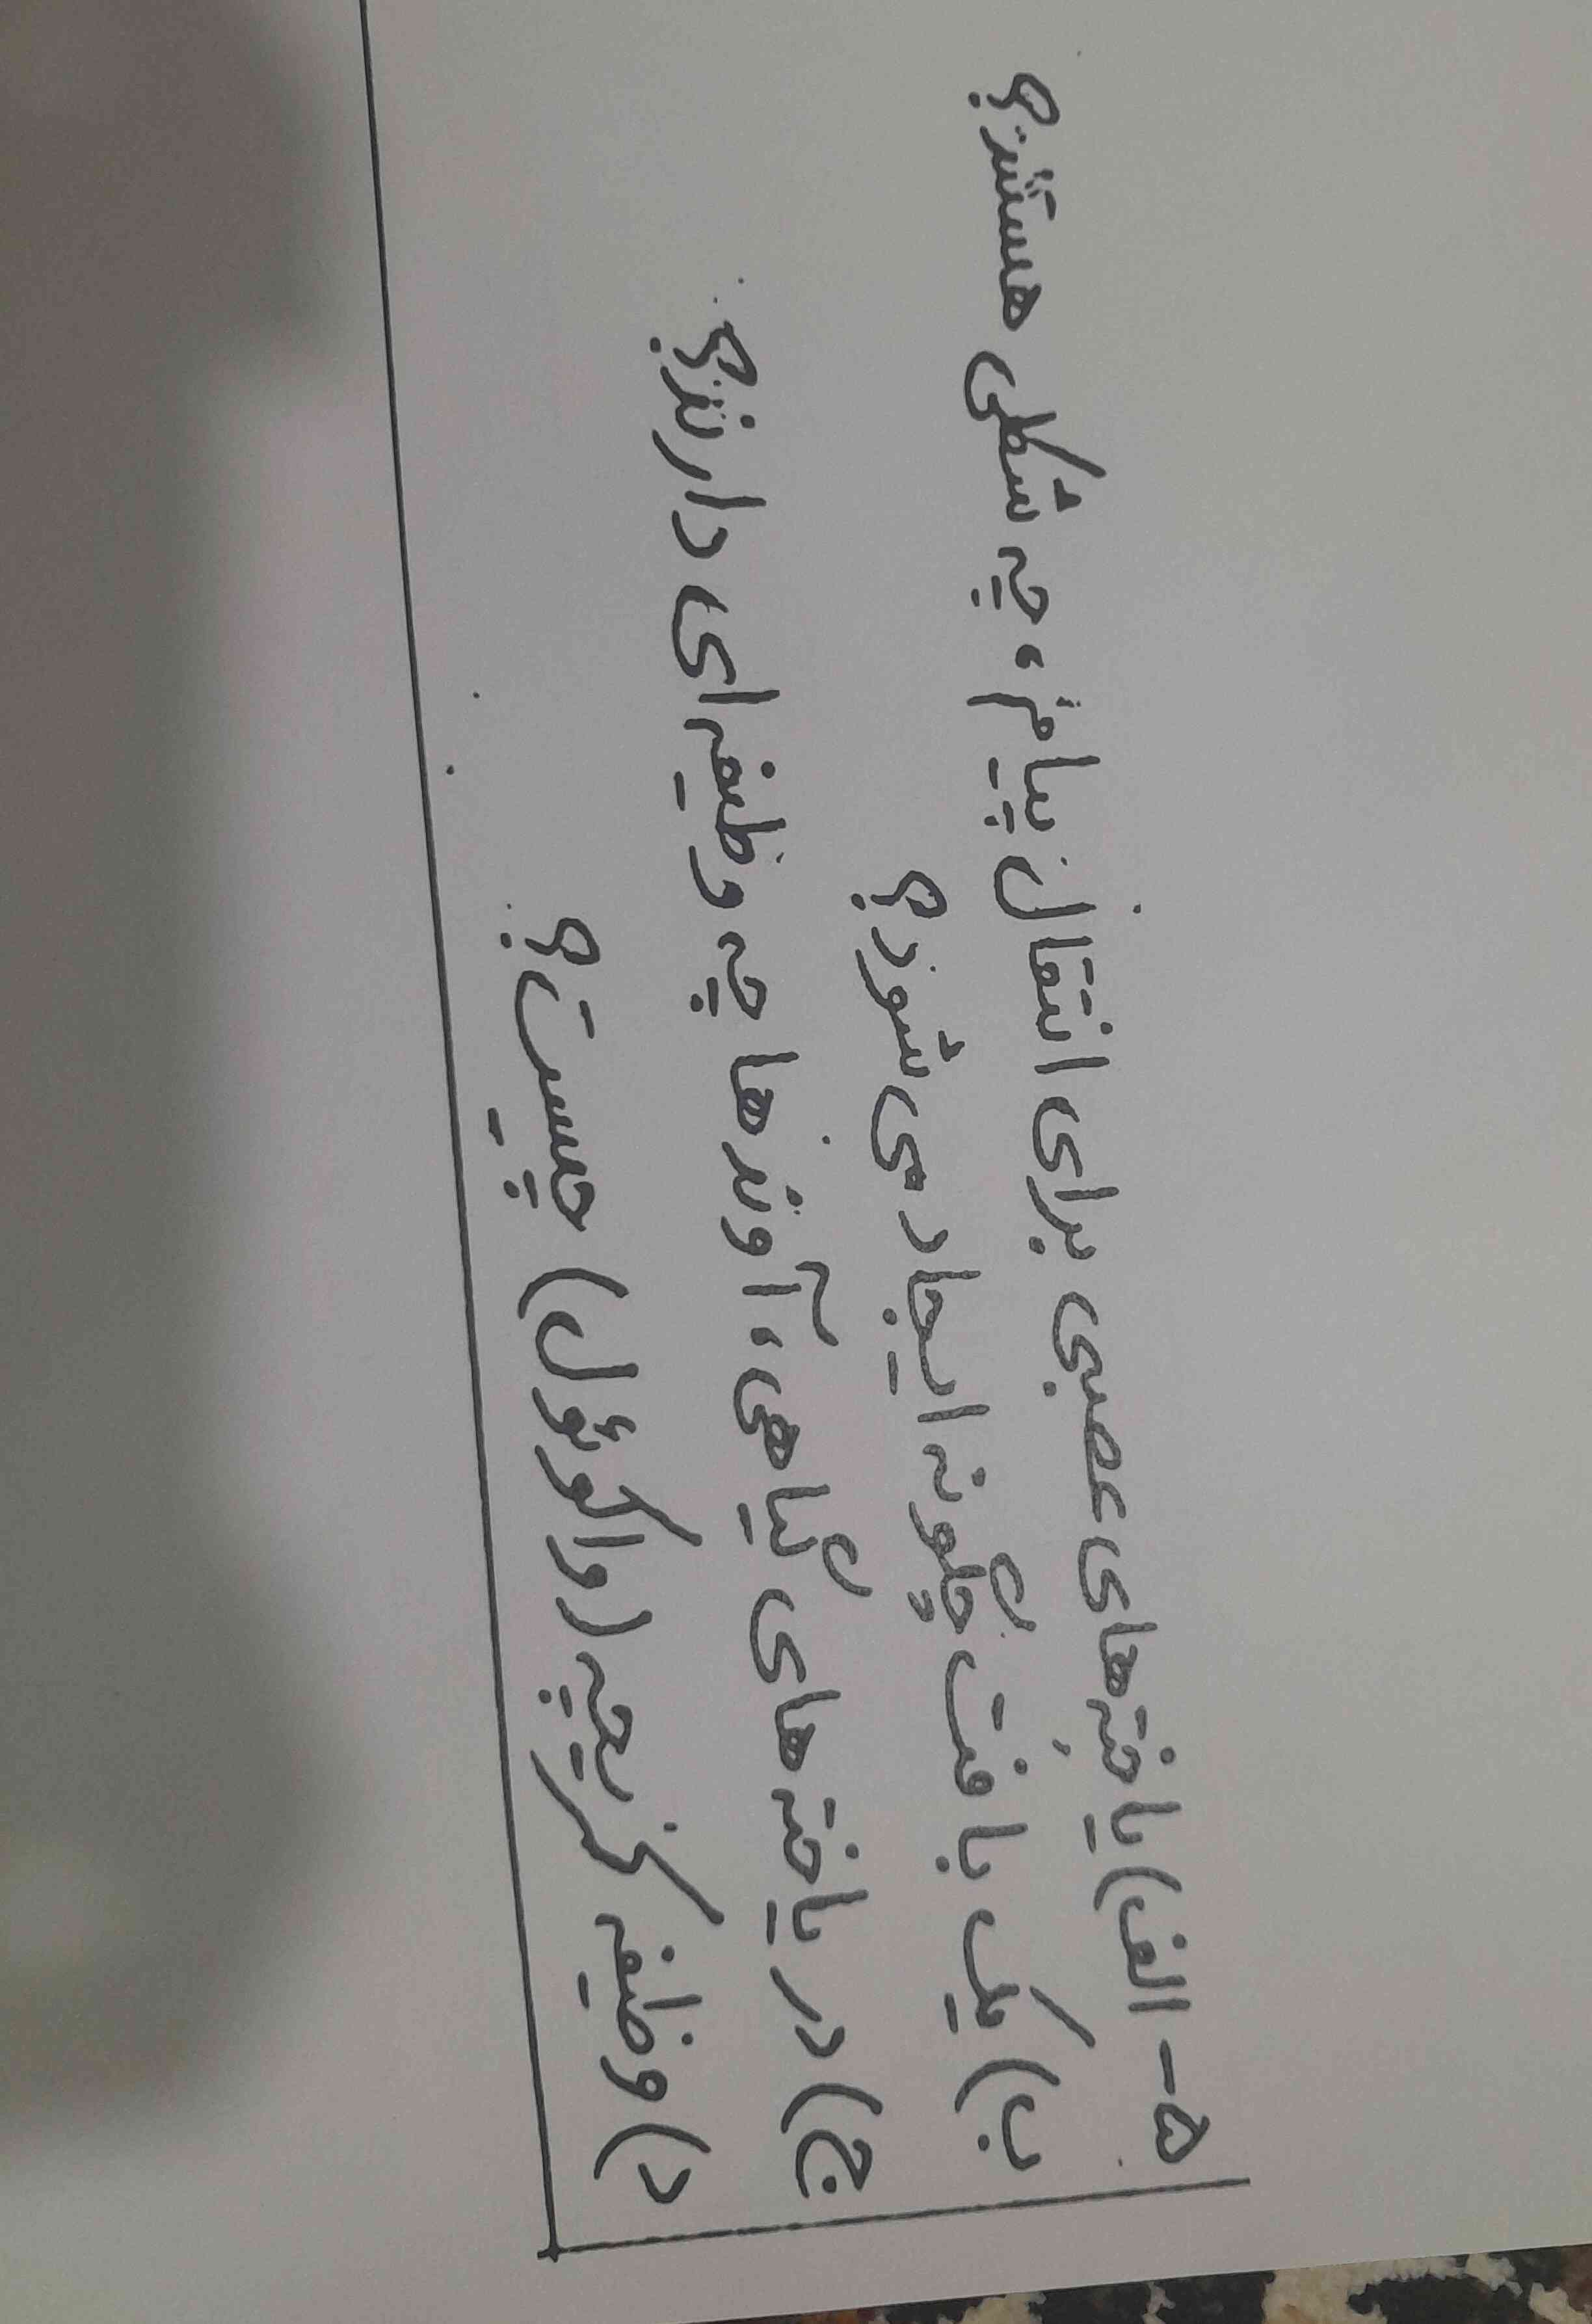 ۵- الف) یاخته‌های عصبی برای انتقال پیام، چه شکلی هستند؟
ب) یک بافت چگونه ایجاد می‌شود؟
ج) در یاخته‌های گیاهی، آوندها چه وظیفه‌ای دارند؟
د) وظیفه کریچه (واکوئول) چیست؟